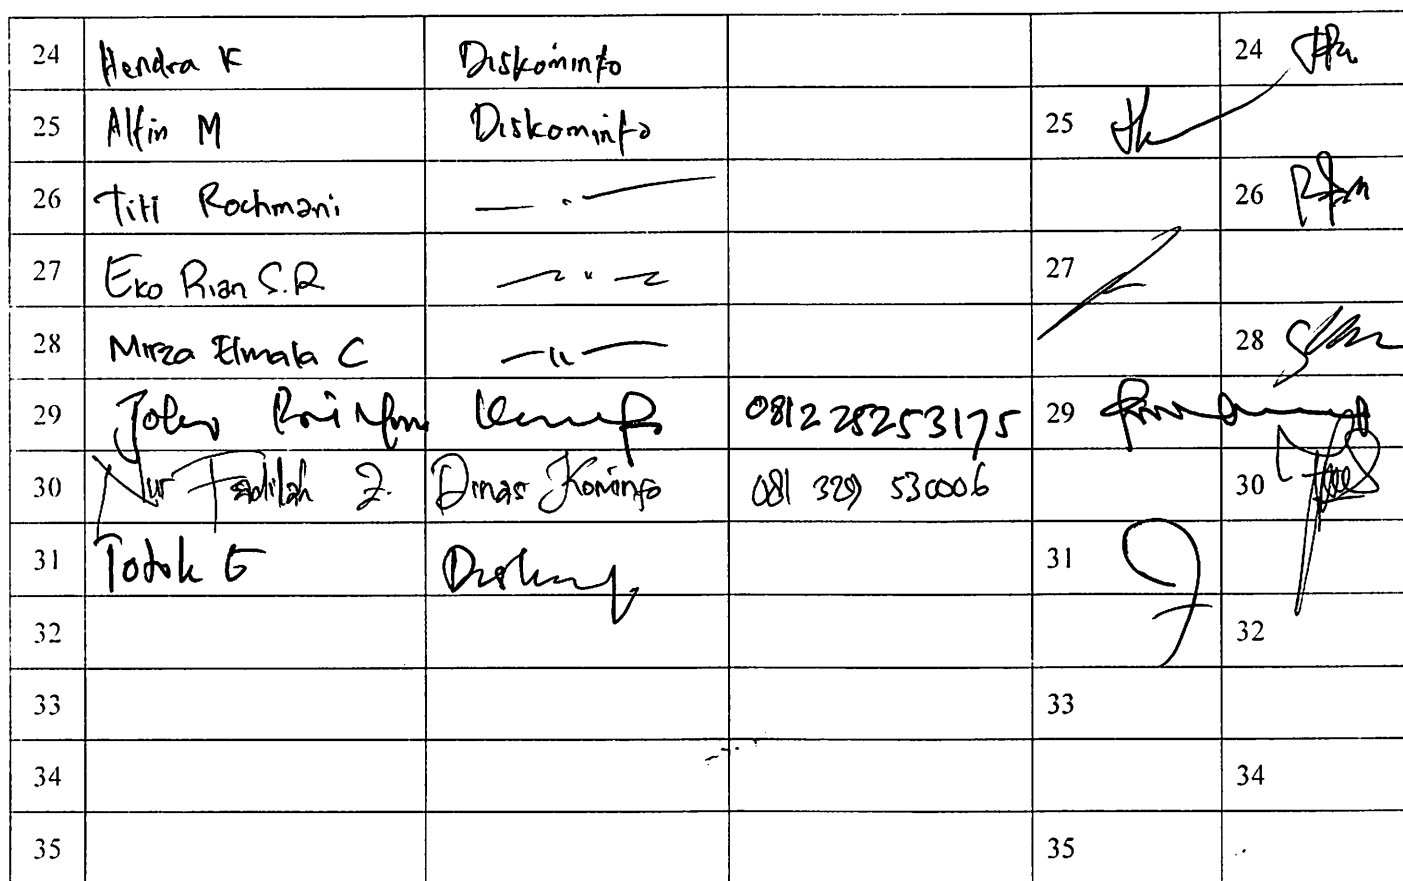 24 Hendra K Diskominfo 24
25 Alfin M Diskominfo 25
26 Titi Rochmani — . — 26
27 Eko Rian S.R — " — 27
28 Mirza Elmala C — " — 28
29 081228253175 29
30 Nur Fadilah Z. Dinas Kominfo 081 329 530006 30
31 Totok G 31
32 32
33 33
34 34
35 35